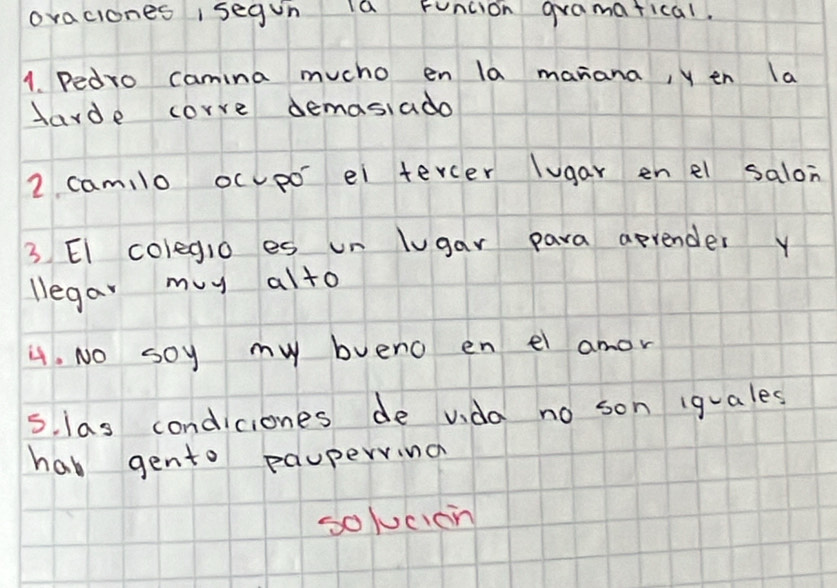 oraciones, segun la función gramatical.
1. Pedro camina mucho en la mañana, y en la
tarde corre demasiado
2. camilo ocupó el tercer lugar en el salón
3. El colegio es un lugar para aprender y
llegar muy alto
4. No soy muy bueno en el amor
5. las condiciones de vida no son iguales
hab gento pauperrina
solución